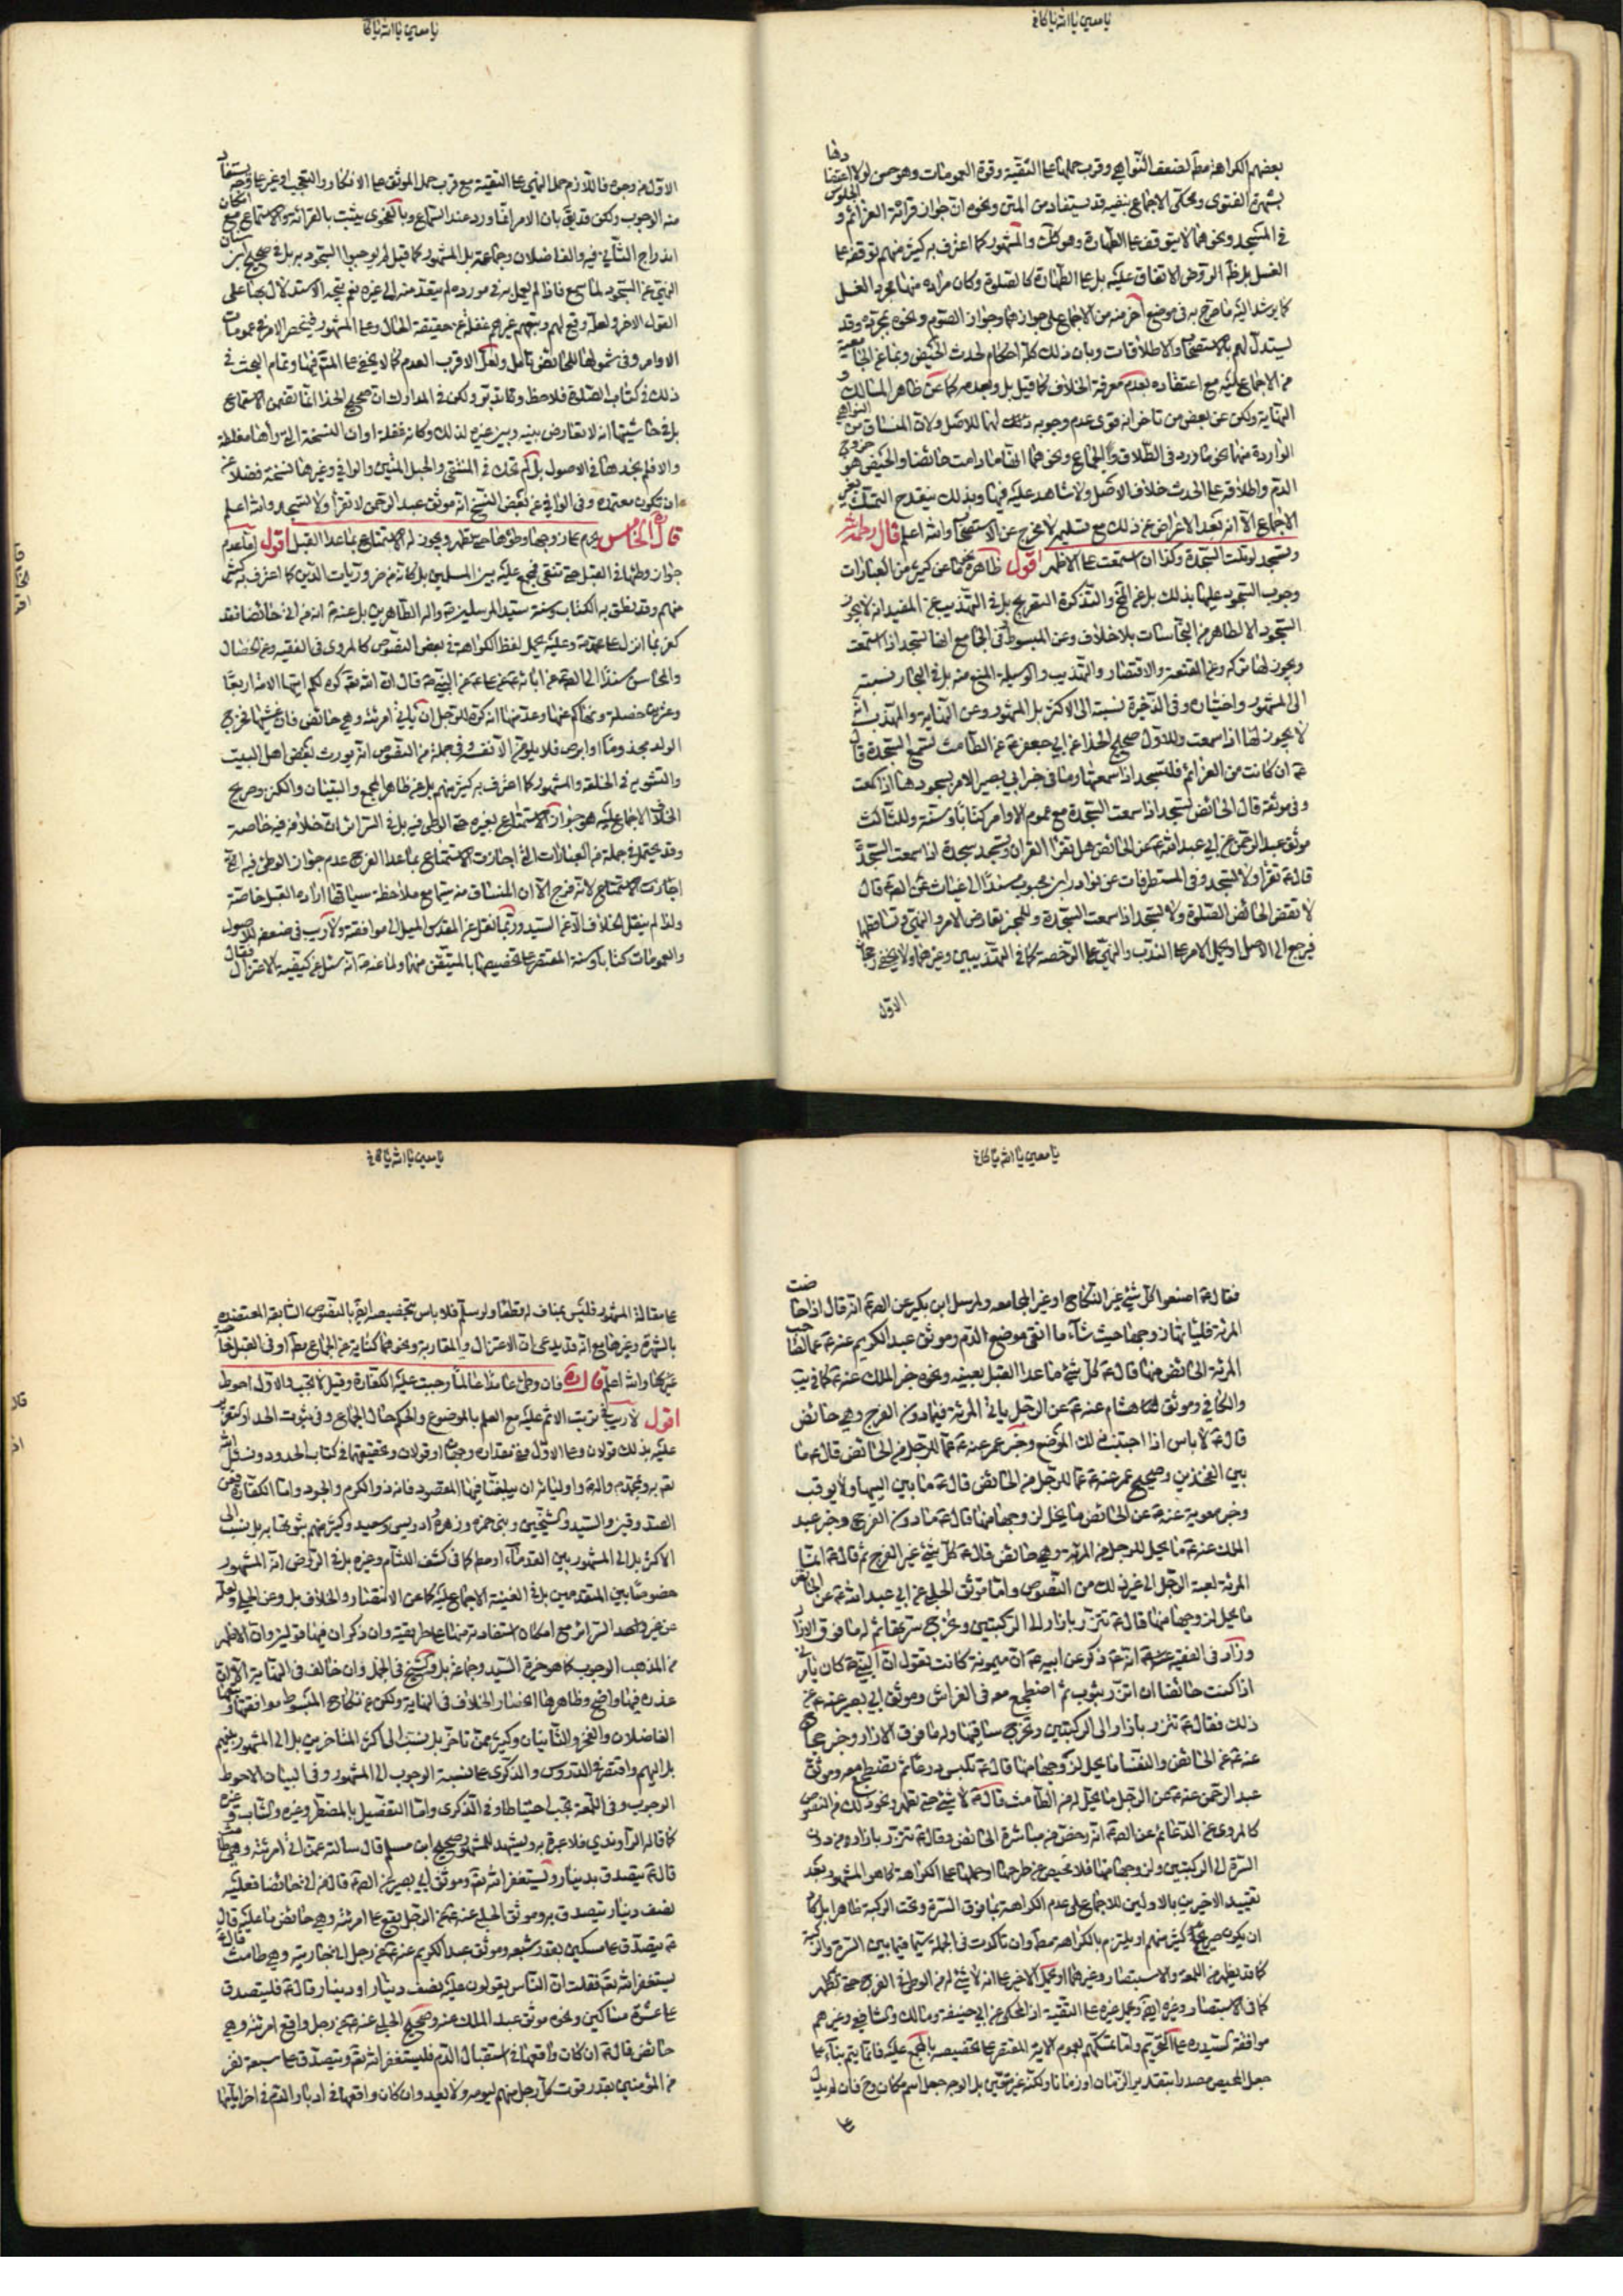 يا معين يا الله يا كافي
بعضهم الكراهة مط لضعف النواهي وقرب حملها على التقية وقوة العمومات وهو حسن لولا اعتضادها
بشهرة الفتوى ومحكي الاجماع بنفيه قد يستفاد من المتن ونحوه ان جواز قرائة العزائم والجلوس
في المسجد ونحوهما لا يتوقف على الطهارة وهو كك والمشهور كما اعترف به كثير منهم توقفه على
الغسل بل ظ الروض الاتفاق عليه بل على الطهارة كالصلوة وكان مراده منها مجرد الغسل
كما يرشد اليه ما صرح به في موضع آخر منه من الاجماع على جوازهما وجواز الصوم ونحوه بمجرده وقد
يستدل لهم بالاستصحاب والاطلاقات وبان ذلك كله احكام لحدث الحيض
من الاجماع عليه مع اعتضاده بعدم معرفة الخلاف كما قيل بل وبعدمه كما عن ظاهر المسالك و
النهاية ولكن عن بعض من تاخر انه قوى عدم وجوبه لذلك لهما للاصل ولان المنساق من النواهي
الواردة منها نحو ما ورد في الطلاق والجماع ونحوهما انها ما دامت حائضا والحيض هو خروج
الدم واطلاقه على الحدث خلاف الاصل ولا شاهد عليه فيها وبذلك ينقدح التمسك
الاجماع الا انه بعد الاغراض عن ذلك مع تسليمه لا مخرج عن الاستصحاب والله اعلم قال رحمه الله
وتسجد لو تلت السجدة وكذا ان استمعت على الاظهر اقول ظاهره كما عن كثير من العبارات
وجوب السجود عليها بذلك بل عن المخ والتذكرة التصريح بل في التهذيب عن المفيد انه لا يجوز
السجود الا لطاهر من النجاسات بلا خلاف وعن المبسوط كفي الجامع ايضا تسجد اذا استمعت
ويجوز لها تركه وعن المقنعة والاقتصار والتهذيب والوسيلة المنع منه بل في البحار نسبته
الى المشهور واختياره وفي الذخيرة نسبة الى الاكثر بل المشهور وعن النهاية والمهذب انه
لا يجوز لها اذا سمعت وللاول صحيح الحذاء عن ابي جعفر ع عن الطامث تسمع السجدة قال
ع ان كانت من العزائم فلتسجد اذا سمعتها وما في خبر ابي بصير الامر بسجودها اذا سمعت
وفي موثقه قال الحائض تسجد اذا سمعت السجدة مع عموم الاوامر كتابا وسنة وللثالث
موثق عبد الرحمن عن ابي عبد الله ع عن الحائض هل تقرا القران وتسجد سجدة اذا سمعت السجدة
قال ع تقرا ولا تسجد وفي المستطرفات عن نوادر ابن محبوب مسندا الى غياث عن الص ع قال
لا تقضي الحائض الصلوة ولا تسجد اذا سمعت السجدة وللمجوز تعارض الامر والنهي وتساقطهما
فيرجع الى الاصل او يحمل الامر على الندب والنهي على الرخصة كما في التهذيبين وغيرهما ولا يخفى رجحان
الاول
يا معين يا الله يا كا
الاول من وجوه فاللازم حمل النهي على التقية مع قرب حمل الموثق على الانكار والتعجب او غير
منه الوجوب ولكن قد يق بان الامر انما ورد عند السماع وبالفحوى يثبت بالقرائة والاستماع مع امكان
اندراج الثاني فيه والفاضلان وجماعة بل المشهور كما قيل لم يوجبوا السجود به بل في صحيح
النهي عن السجود لما سمع فاذا لم يعمل به في مورده لم يتعد منه الى غيره نعم يتجه الاستدلال بها على
القول الاخر ولعله وقع لهم وتبعهم غيرهم غفلة عن حقيقة الحال وعلى المشهور فينحصر الامر في عمومات
الاوامر وفي شمولها للحائض تامل ولعل الاقرب العدم كما لا يخفى على المتامل فيها وتمام البحث في
ذلك في كتاب الصلوة فلاحظ وقد يق ولكن في المدارك ان صحيح الحذاء انما تضمن الاستماع
بل في حاشيتها انه لا تعارض بينه وبين غيره لذلك وكانه غفلة او ان النسخة التي راها مغلطة
والا فلم نجدها في الاصول بل لم تحك في المنتقى والحبل المتين والوافي وغيرها نسخة فضلا عن
ان تكون معتمدة وفي الوافي عن بعض النسخ انه موثق عبد الرحمن لا تقرأ ولا تسجد والله اعلم
قال ره الخامس يحرم على زوجها وطؤها حتى تطهر ويجوز له الاستمتاع بما عدا القبل اقول اما عدم
جواز وطئها في القبل حتى تنقى فمجمع عليه بين المسلمين بل كانه من ضروريات الدين كما اعترف به كثير
منهم وقد نطق به الكتاب وسنة سيد المرسلين ص واله الطاهرين بل عنه ع انه من اتى حائضا فقد
كفر بما انزل على محمد ص وعليه يحمل لفظ الكراهة في بعض النصوص كالمروي في الفقيه وعن الخصال
والمجالس مسندا الى الص ع عن ابائه ع عن علي ع عن النبي ص قال ان الله تع كره لكم ايتها الامة اربعا
وعشرين خصلة ونهاكم عنها وعد منها انه كره للرجل ان ياتي امرئته وهي حائض فان غشيها فخرج
الولد مجذوما او ابرص فلا يلومن الا نفسه وفي جملة من النصوص انه يورث بغض اهل البيت
والتشويه في الخلقة والمشهور كما اعترف به كثير منهم بل عن ظاهر المجمع والتبيان والكنز وصريح
الخلاف الاجماع عليه هو جواز الاستمتاع بغيره حتى الوطي فيه بل في السرائر ان خلافه فيه خاصة
وقد يحتمل في جملة من العبارات التي اجازت الاستمتاع بما عدا الفرج عدم جواز الوطي فيه التي
اجازت الاستمتاع لانه فرج الا ان المنساق منه سيما مع ملاحظة سياقها ارادة القبل خاصة
ولذا لم ينقل الخلاف الا عن السيد وربما نقل عن المقدس الميل الى موافقته ولا ريب في ضعفه للاصول
والعمومات كتابا وسنة المقتصر على تخصيصها بالمتيقن منها ولما عنه ص انه سئل عن كيفية الاعتزال فقال
يا معين يا الله يا كافي
فقال ع اصنعوا كل شيء غير النكاح او غير الجامعه ولمرسل ابن بكير عن الص ع انه قال اذا حاضت
المرئة فلياتها زوجها حيث شاء ما اتقى موضع الدم وموثق عبد الكريم عنه ع عما لصاحب
المرئة الحائض منها قال ع كل شيء ما عدا القبل بعينه ونحوه خبر الملك عنه ع كما في يب
والكافي وموثق هشام عنه ع عن الرجل ياتي المرئة فيما دون الفرج وهي حائض
قال ع لا باس اذا اجتنب ذلك الموضع وخبر عمر عنه ع عما للرجل من الحائض قال ع ما
بين الفخذين وصحيح عمر عنه ع عما للرجل من الحائض قال ع ما بين اليتيها ولا يوقب
وخبر معوية عنه ع عن الحائض ما يحل لزوجها منها قال ع ما دون الفرج وخبر عبد
الملك عنه ع ما يحل للرجل من المرئة وهي حائض قال ع كل شيء غير الفرج ثم قال ع انما
المرئة لعبة الرجل الى غير ذلك من النصوص واما موثق الحلبي عن ابي عبد الله ع عن الحائض
ما يحل لزوجها منها قال ع تتزر بازار الى الركبتين وتخرج سرتها ثم له ما فوق الازار
وزاد في الفقيه انه ع ذكر عن ابيه ع ان ميمونة كانت تقول ان النبي ص كان يامرني
اذا كنت حائضا ان اتزر بثوب ثم اضطجع معه في الفراش وموثق ابي بصير عنه ع عن
ذلك فقال ع تتزر بازار الى الركبتين وتخرج ساقيها وله ما فوق الازار وخبر حجاج
عنه ع عن الحائض والنفسا ما يحل لزوجها منها قال ع تلبس درعا ثم تضطجع معه وموثق
عبد الرحمن عنه ع عن الرجل ما يحل له من الطامث قال ع لا شيء حتى تطهر ونحو ذلك من النصوص
كالمروي عن الدعائم عن الص ع انه رخص في مباشرة الحائض وقال ع تتزر بازار من دون
السرة الى الركبتين ولزوجها منها فلا محيص عن طرحها او حملها على الكراهة كما هو المشهور بعد
تقييد الاخيرين بالاولين للاجماع على عدم الكراهة بما فوق السرة وتحت الركبة ظاهرا بل كاد
ان يكون صريح كثير منهم او يلتزم بالكراهة مط وان تاكدت في الجملة سيما فيما بين السرة والركبة
كما قد يظهر من اللمعة والاستبصار وغيرهما او يحمل الاخير على انه لا شيء له من الوطي في الفرج حتى تطهر
كما في الاستبصار وغيره ايضا ويحمل غيره على التقية اذ المحكي عن ابي حنيفة ومالك والشافعي وغيرهم
موافقة السيد ره على التحريم ولما تمسكهم بعموم الاية المقتصر على تخصيصه بالمجمع عليه فانما يتم بناء على
جعل المحيض مصدرا بتقدير الزمان او زمانا ولكنه غير متعين بل الوجه جعل اسم مكان وح فان لم يدل
على
يا معين يا الله يا كافي
على مقالة المشهور فليس بمناف له قطعا ولو سلم فلا باس بتخصيصه ايضا بالنصوص السابقة المعتضده
بالشهرة وغيرها مع انه قد يدعى ان الاعتزال والمقاربة ونحوهما كناية عن الجماع مط او في القبل خاصة
عرفا والله اعلم قال ره فان وطئ عامدا عالما وجبت عليه الكفارة وقيل لا تجب والاول احوط
اقول لا ريب في ترتب الاثم عليه مع العلم بالموضوع والحكم حال الجماع وفي ثبوت الحد او التعزير
عليه بذلك قولان وعلى الاول ففي مقداره وجهان او قولان وتحقيقهما في كتاب الحدود ونسئل الله
تع به وبمحمد ص واله ع واوليائه ان يبلغنا فيها المقصود فانه ذو الكرم والجود واما الكفارة فعن
الصدوقين والسيد والشيخين وبني حمزة وزهره وادريس وسعيد وكثير منهم ثبوتها به بل نسب الى
الاكثر بل الى المشهور بين القدماء او مط كما في كشف اللثام وغيره بل في الروض انه المشهور
خصوصا بين المتقدمين بل في الغنية الاجماع عليه كما عن الانتصار والخلاف بل وعن الحلي ولعله
عن غير واحد السرائر مع امكان استفادته منها على طريقته وان ذكر ان فيها قولين وان الاظهر
من المذهب الوجوب كما هو خيرة السيد وجماعة بل والشيخ في الجمل وان خالف في النهاية الا ان
عذره فيها واضح وظاهرها انحصار الخلاف في النهاية ولكن عن نكاح المبسوط موافقتها و
الفاضلان والفخر والثانيان وكثير ممن تاخر بل نسب الى اكثر المتاخرين بل الى المشهور بينهم
بل اليهم واقتصر في الدروس والذكرى على نسبة الوجوب الى المشهور وفي البيان الاحوط
الوجوب وفي اللمعة تجب احتياطا وفي الذكرى واما التفصيل بالمضطر وغيره والشاب وغيره
كما قاله الراوندي فلا عبرة به ويشهد للمشهور صحيح ابن مسلم قال سالته عمن اتى امرئته وهي طامث
قال ع يتصدق بدينار ويستغفر الله تع وموثق ابي بصير عن الص ع قال من اتى حائضا فعليه
نصف دينار يتصدق به وموثق الحلبي عنه ع عن الرجل يقع على امرئته وهي حائض ما عليه قال
ع يتصدق على مسكين بقدر شبعه وموثق عبد الكريم عنه ع عن رجل اتى جاريته وهي طامث قال ع
يستغفر الله تع فقلت ان الناس يقولون عليه نصف دينار او دينار قال ع فليتصدق
على عشرة مساكين ونحوه موثق عبد الملك عنه وصحيح الحلبي عنه ع عن رجل واقع امرئته وهي
حائض قال ع ان كان واقعها في استقبال الدم فليستغفر الله تع ويتصدق على سبعة نفر
من المؤمنين بقدر قوت كل رجل منهم ليومه ولا يعد وان كان واقعها في ادبار الدم في اخر ايامها